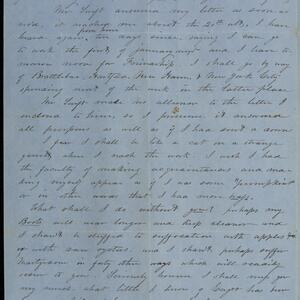 Mr Swift answered my letter as soon as
rec'd, it reached me about the 20th ult, I have
heard again from him ten days since saying I can go
to work the first of January and I have to
morrow noon for Friendship I shall go by way
of Brattleboro Hartford New Haven & New York City
spending most of the week in the latter place
Mr Swift made no allusion to the letter I
enclosed to him, so I presume it answered
all purposes as well as if I had sent a dozen
I fear I shall be like a cat on a strange
garret, when I reach the work I wish I had
the faculty of making acquaintances and ma-
king myself appear as if I was "some pumpkins"
or in other words that I had more brass.
What shall I do without you? perhaps my
Boots will wear longer and keep cleaner and
I shan't be stuffed to suffocation with apples &
up with raw oysters and I shan't perhaps suffer
Martyrdom in forty other ways which will readily
occur to you. Seriously however I shall miss you
very much. What little I know of Large has been